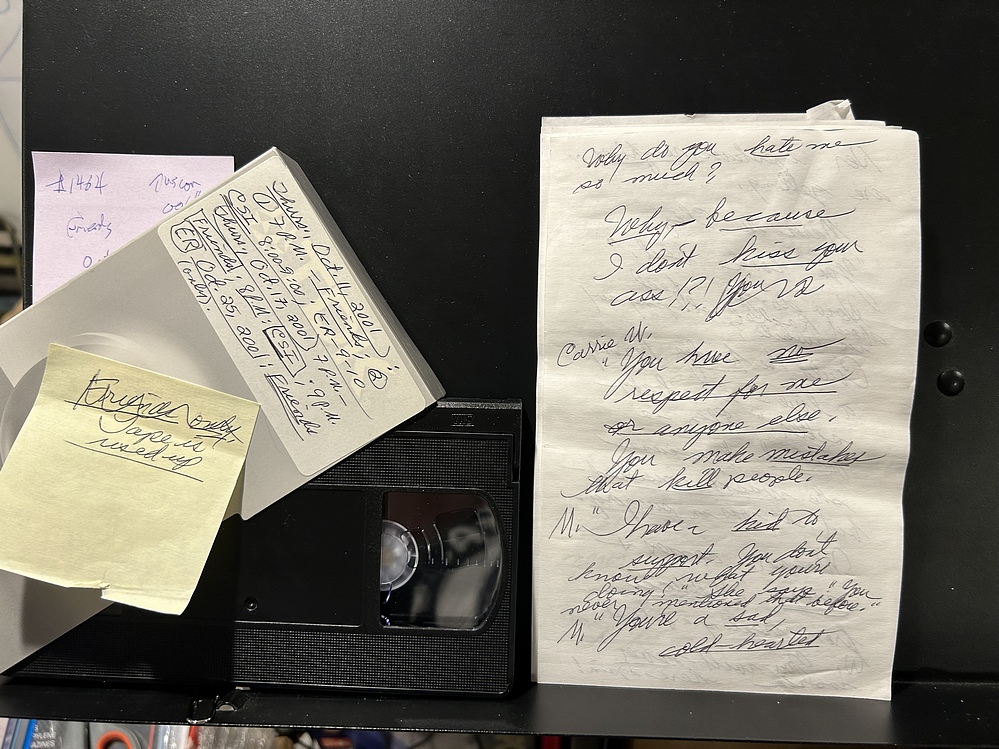 $1464
Friends
Thurs. Oct. 11, 2001;
① 7 P.M. — Friends; ②
CSI 8:00-9:00; ER-9-10
Thurs. Oct. 17, 2001; 7 P.M-
Friends; 8 P.M. CSI; 9 P.M.
ER Oct. 25, 2001; Friends
(only).
only.
Tape is
used up
Why do you hate me
so much?
Why - because
I don't kiss your
ass!?! You
Carrie W.
"You have no
respect for me
or anyone else.
You make mistakes
that kill people.
M. "I have a kid to
support. You don't
know what you're
doing!" She says "You
never mentioned that before."
M. "You're a sad,
cold-hearted